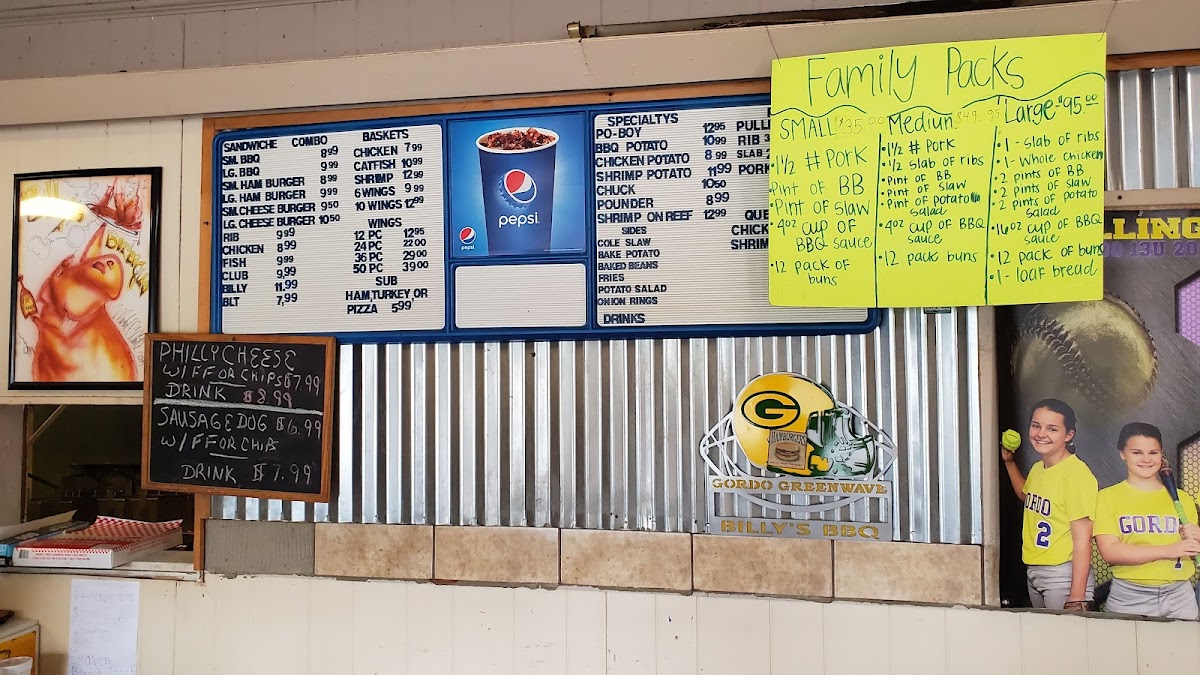 SANDWICHE COMBO
SM. BBQ 8⁹⁹
LG. BBQ 9⁹⁹
SM. HAM BURGER 8⁹⁹
LG. HAM BURGER 9⁹⁹
SM. CHEESE BURGER 9⁵⁰
LG. CHEESE BURGER 10⁵⁰
RIB 9⁹⁹
CHICKEN 8⁹⁹
FISH 9⁹⁹
CLUB 9,99
BILLY 11,99
BLT 7,99
BASKETS
CHICKEN 7⁹⁹
CATFISH 10⁹⁹
SHRIMP 12⁹⁹
6 WINGS 9⁹⁹
10 WINGS 12⁹⁹
WINGS
12 PC 12⁹⁵
24 PC 22⁰⁰
36 PC 29⁰⁰
50 PC 39⁰⁰
SUB
HAM,TURKEY, OR
PIZZA 5⁹⁹
pepsi
pepsi
SPECIALTYS
PO-BOY 12⁹⁵
BBQ POTATO 10⁹⁹
CHICKEN POTATO 8⁹⁹
SHRIMP POTATO 11⁹⁹
CHUCK 10⁵⁰
POUNDER 8⁹⁹
SHRIMP ON REEF 12⁹⁹
SIDES
COLE SLAW
BAKE POTATO
BAKED BEANS
FRIES
POTATO SALAD
ONION RINGS
DRINKS
PULL
RIB
SLAB
PORK
QUE
CHICK
SHRIM
Family Packs
SMALL $35.00
•1½ # PORK
•Pint of BB
•Pint of Slaw
•4oz cup of
BBQ sauce
•12 pack of
buns
Medium $49.95
•1½ # PORK
•½ slab of ribs
•Pint of BB
•Pint of Slaw
•Pint of potato
Salad
•4oz cup of BBQ
sauce
•12 pack buns
Large-$95.00
•1-slab of ribs
•1-Whole chicken
•2 pints of BB
•2 pints of slaw
•2 pints of potato
Salad
•16oz cup of BBQ
sauce
•12 pack of buns
•1-loaf bread
PHILLY CHEESE
W/FF OR CHIPS $7.99
DRINK $8.99
SAUSAGE DOG $6.99
W/FF OR CHIPS
DRINK $7.99
G
HAMBURGERS
GORDO GREENWAVE
BILLY'S BBQ
LLING
13U 20
GORDO
2
GORDO